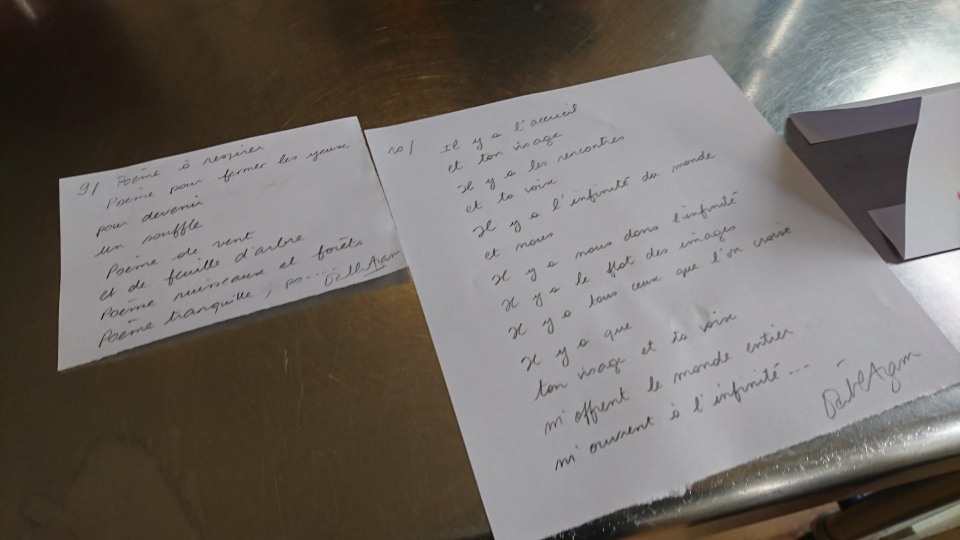 9/ Poème à respirer
Poème pour fermer les yeux
pour devenir
un souffle
Poème de vent
et de feuille d'arbre
Poème ruisseaux et forêts
Poème tranquille,
10/ Il y a l'accueil
et ton visage
Il y a les rencontres
et ta voix
Il y a l'infinité du monde
et nous
Il y a nous dans l'infinité
Il y a le flot des images
Il y a tous ceux que l'on croise
Il y a que
ton visage et ta voix
m'offrent le monde entier
m'ouvrent à l'infinité...